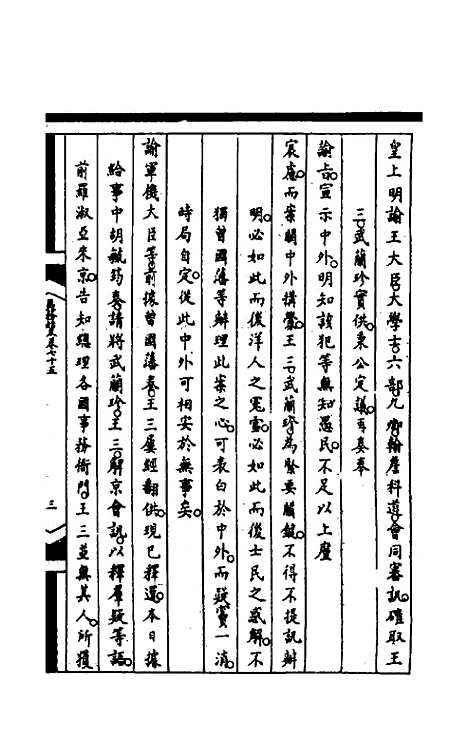 皇上明諭王大臣。大學士。六部。九卿。翰詹科道。會同審訊。確取王
三。武蘭珍實供。秉公定議。再奏奉
諭旨。宣示中外。明知該犯等無知愚民。不足以上塵
宸慮。而案關中外搆釁。王三。武蘭珍。為緊要關鍵。不得不提訊辦
明。必如此而後洋人之冤。靈。必如此而後士民之惑。解。不
獨曾國藩等辦理此案之心。可表白於中外。而疑竇一消。
時局自定。從此中外可相安於無事矣。
諭軍機大臣等。前據曾國藩奏。王三屢經翻供。現已釋還。本日據
給事中胡毓筠奏。請將武蘭珍。王三。解京會訊。以釋羣疑等語。
前羅淑亞來京。告知總理各國事務衙門。王三並無其人。所獲
卷七十五
三